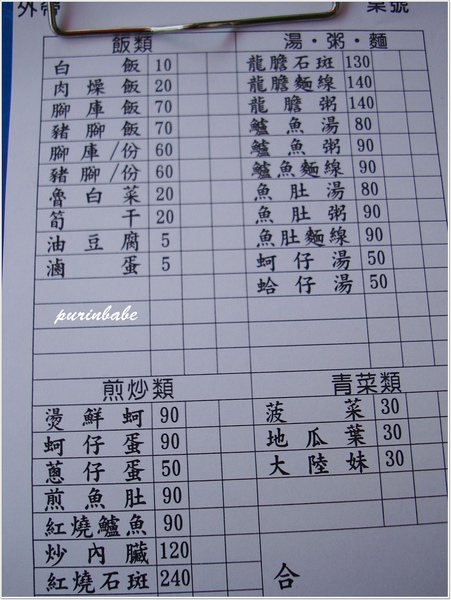 外帶
桌號
飯類
白飯 10
肉燥飯 20
腳庫飯 70
豬腳飯 70
腳庫/份 60
豬腳/份 60
魯白菜 20
筍干 20
油豆腐 5
滷蛋 5
湯·粥·麵
龍膽石斑 130
龍膽麵線 140
龍膽粥 140
鱸魚湯 80
鱸魚粥 90
鱸魚麵線 90
魚肚湯 80
魚肚粥 90
魚肚麵線 90
蚵仔湯 50
蛤仔湯 50
purinbabe
煎炒類
燙鮮蚵 90
蚵仔蛋 90
蔥仔蛋 50
煎魚肚 90
紅燒鱸魚 90
炒內臟 120
紅燒石斑 240
青菜類
菠菜 30
地瓜葉 30
大陸妹 30
合